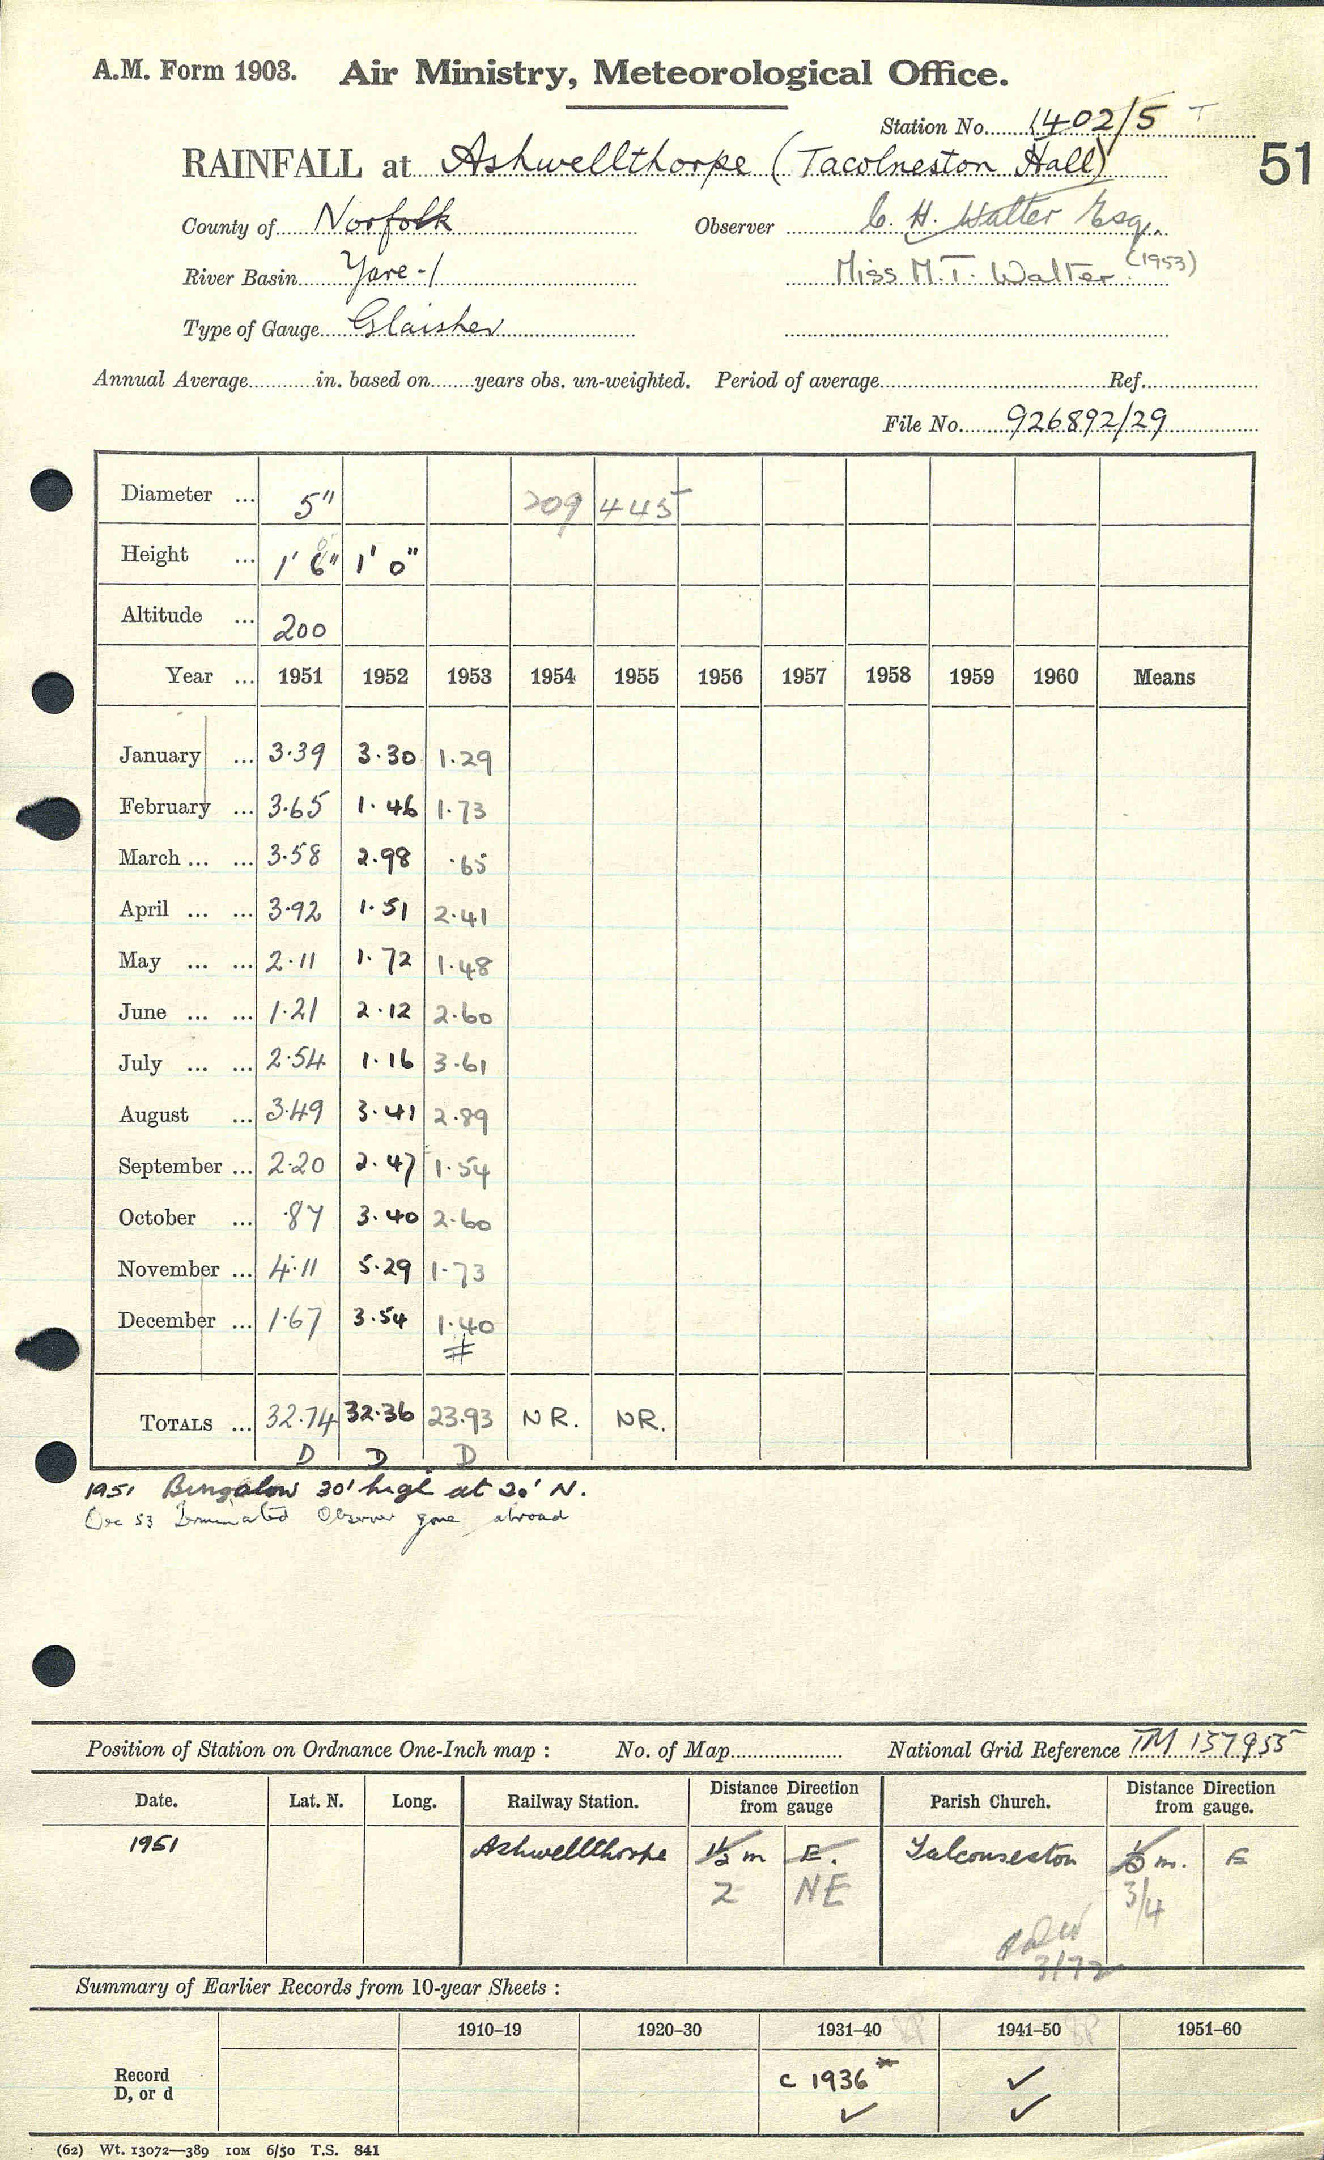 A.M. Form 1903. Air Ministry, Meteorological Office.
Station No. 1402/5 T
RAINFALL at Ashwellthorpe (Tacolneston Hall)
51
County of Norfolk Observer C. H. Walter Esq.
River Basin Yare-1 Miss M.T. Walter (1953)
Type of Gauge Glaisher
Annual Average in. based on years obs. un-weighted. Period of average Ref.
File No. 926892/29
Diameter ... 5" 209 445
Height ... 1' 6" 1' 0"
Altitude ... 200
Year ... 1951 1952 1953 1954 1955 1956 1957 1958 1959 1960 Means
January ... 3.39 3.30 1.29
February ... 3.65 1.46 1.73
March ... ... 3.58 2.98 .65
April ... ... 3.92 1.51 2.41
May ... ... 2.11 1.72 1.48
June ... ... 1.21 2.12 2.60
July ... ... 2.54 1.16 3.61
August ... 3.49 3.41 2.89
September ... 2.20 2.47 1.54
October ... .87 3.40 2.60
November ... 4.11 5.29 1.73
December ... 1.67 3.54 1.40
#
TOTALS ... 32.74 32.36 23.93 NR. NR.
D D D
1951 Bungalow 30' high at 20' N.
Dec 53 Terminated Observer gone abroad
Position of Station on Ordnance One-Inch map : No. of Map National Grid Reference TM 137955
Date. Lat. N. Long. Railway Station. Distance Direction from gauge Parish Church. Distance Direction from gauge.
1951 Ashwellthorpe 1½ m E. m. E
2 NE 3/4
3/72
Summary of Earlier Records from 10-year Sheets :
1910–19 1920–30 1931–40 1941–50 1951–60
Record D, or d c 1936* ✓
✓ ✓
(62) Wt. 13072—389 10M 6/50 T.S. 841